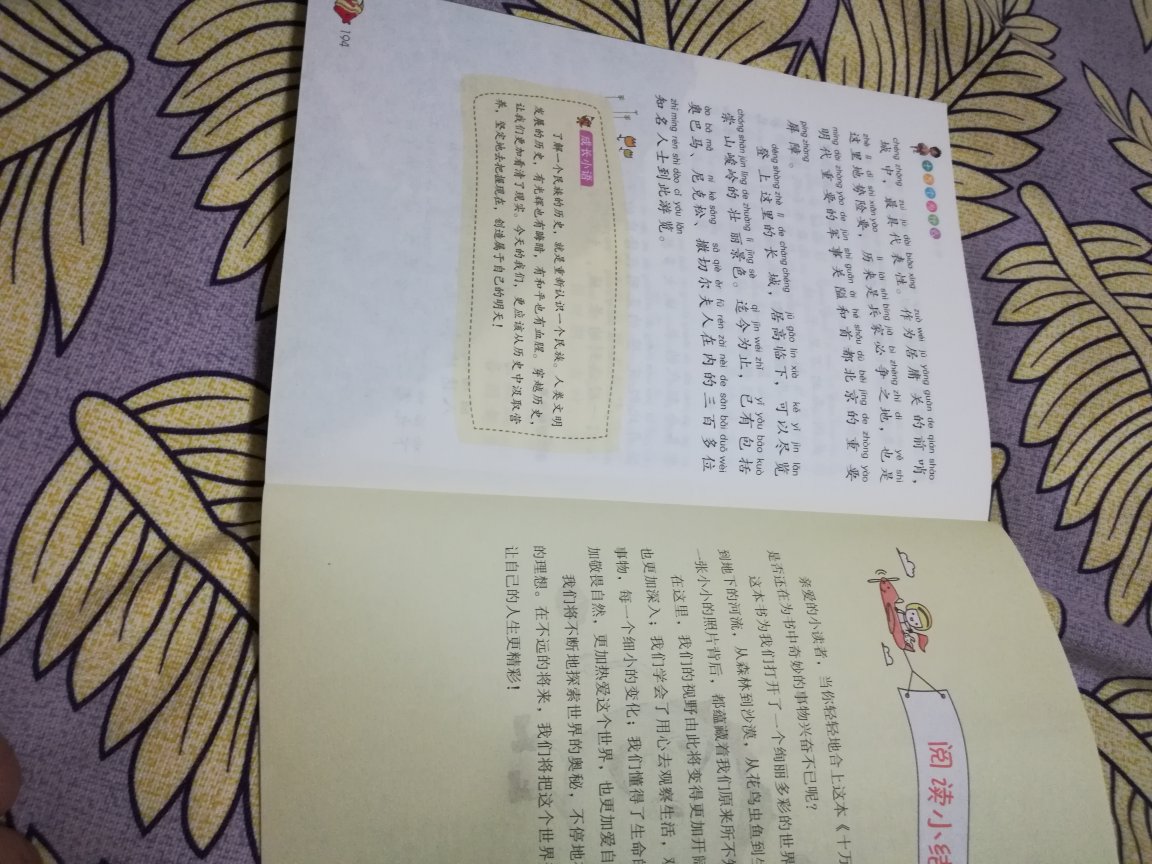 chéng zhōng zuì jù dài biǎo xìng zuò wéi jū yōng guān de qián shào
城中，最具代表性。作为居庸关的前哨，
zhè lǐ dì shì xiǎn yào lì lái shì bīng jiā bì zhēng zhī dì yě shì
这里地势险要，历来是兵家必争之地，也是
míng dài zhòng yào de jūn shì guān ài hé shǒu dū běi jīng de zhòng yào
明代重要的军事关隘和首都北京的重要
píng zhàng
屏障。
dēng shàng zhè lǐ de cháng chéng jū gāo lín xià kě yǐ jìn lǎn
登上这里的长城，居高临下，可以尽览
chóng shān jùn lǐng de zhuàng lì jǐng sè qì jīn wéi zhǐ yǐ yǒu bāo kuò
崇山峻岭的壮丽景色。迄今为止，已有包括
ào bā mǎ ní kè sōng sā qiè ěr fū rén zài nèi de sān bǎi duō wèi
奥巴马、尼克松、撒切尔夫人在内的三百多位
zhī míng rén shì dào cǐ yóu lǎn
知名人士到此游览。
成长小语
了解一个民族的历史，就是重新认识一个民族。人类文明
发展的历史，有光辉也有晦暗，有和平也有血腥。穿越历史，
让我们更加看清了现实。今天的我们，更应该从历史中汲取营
养，坚定地去把握现在，创造属于自己的明天！
194
阅读小结
亲爱的小读者，当你轻轻地合上这本《十万
是否还在为书中奇妙的事物兴奋不已呢？
这本书为我们打开了一个绚丽多彩的世界
到地下的河流，从森林到沙漠，从花鸟虫鱼到
一张小小的照片背后，都蕴藏着我们原来所不
在这里，我们的视野由此将变得更加开
也更加深入；我们学会了用心去观察生活，
事物，每一个细小的变化；我们懂得了生命
加敬畏自然，更加热爱这个世界，也更加爱自
我们将不断地探索世界的奥秘，不停地
的理想。在不远的将来，我们将把这个世界
让自己的人生更精彩！